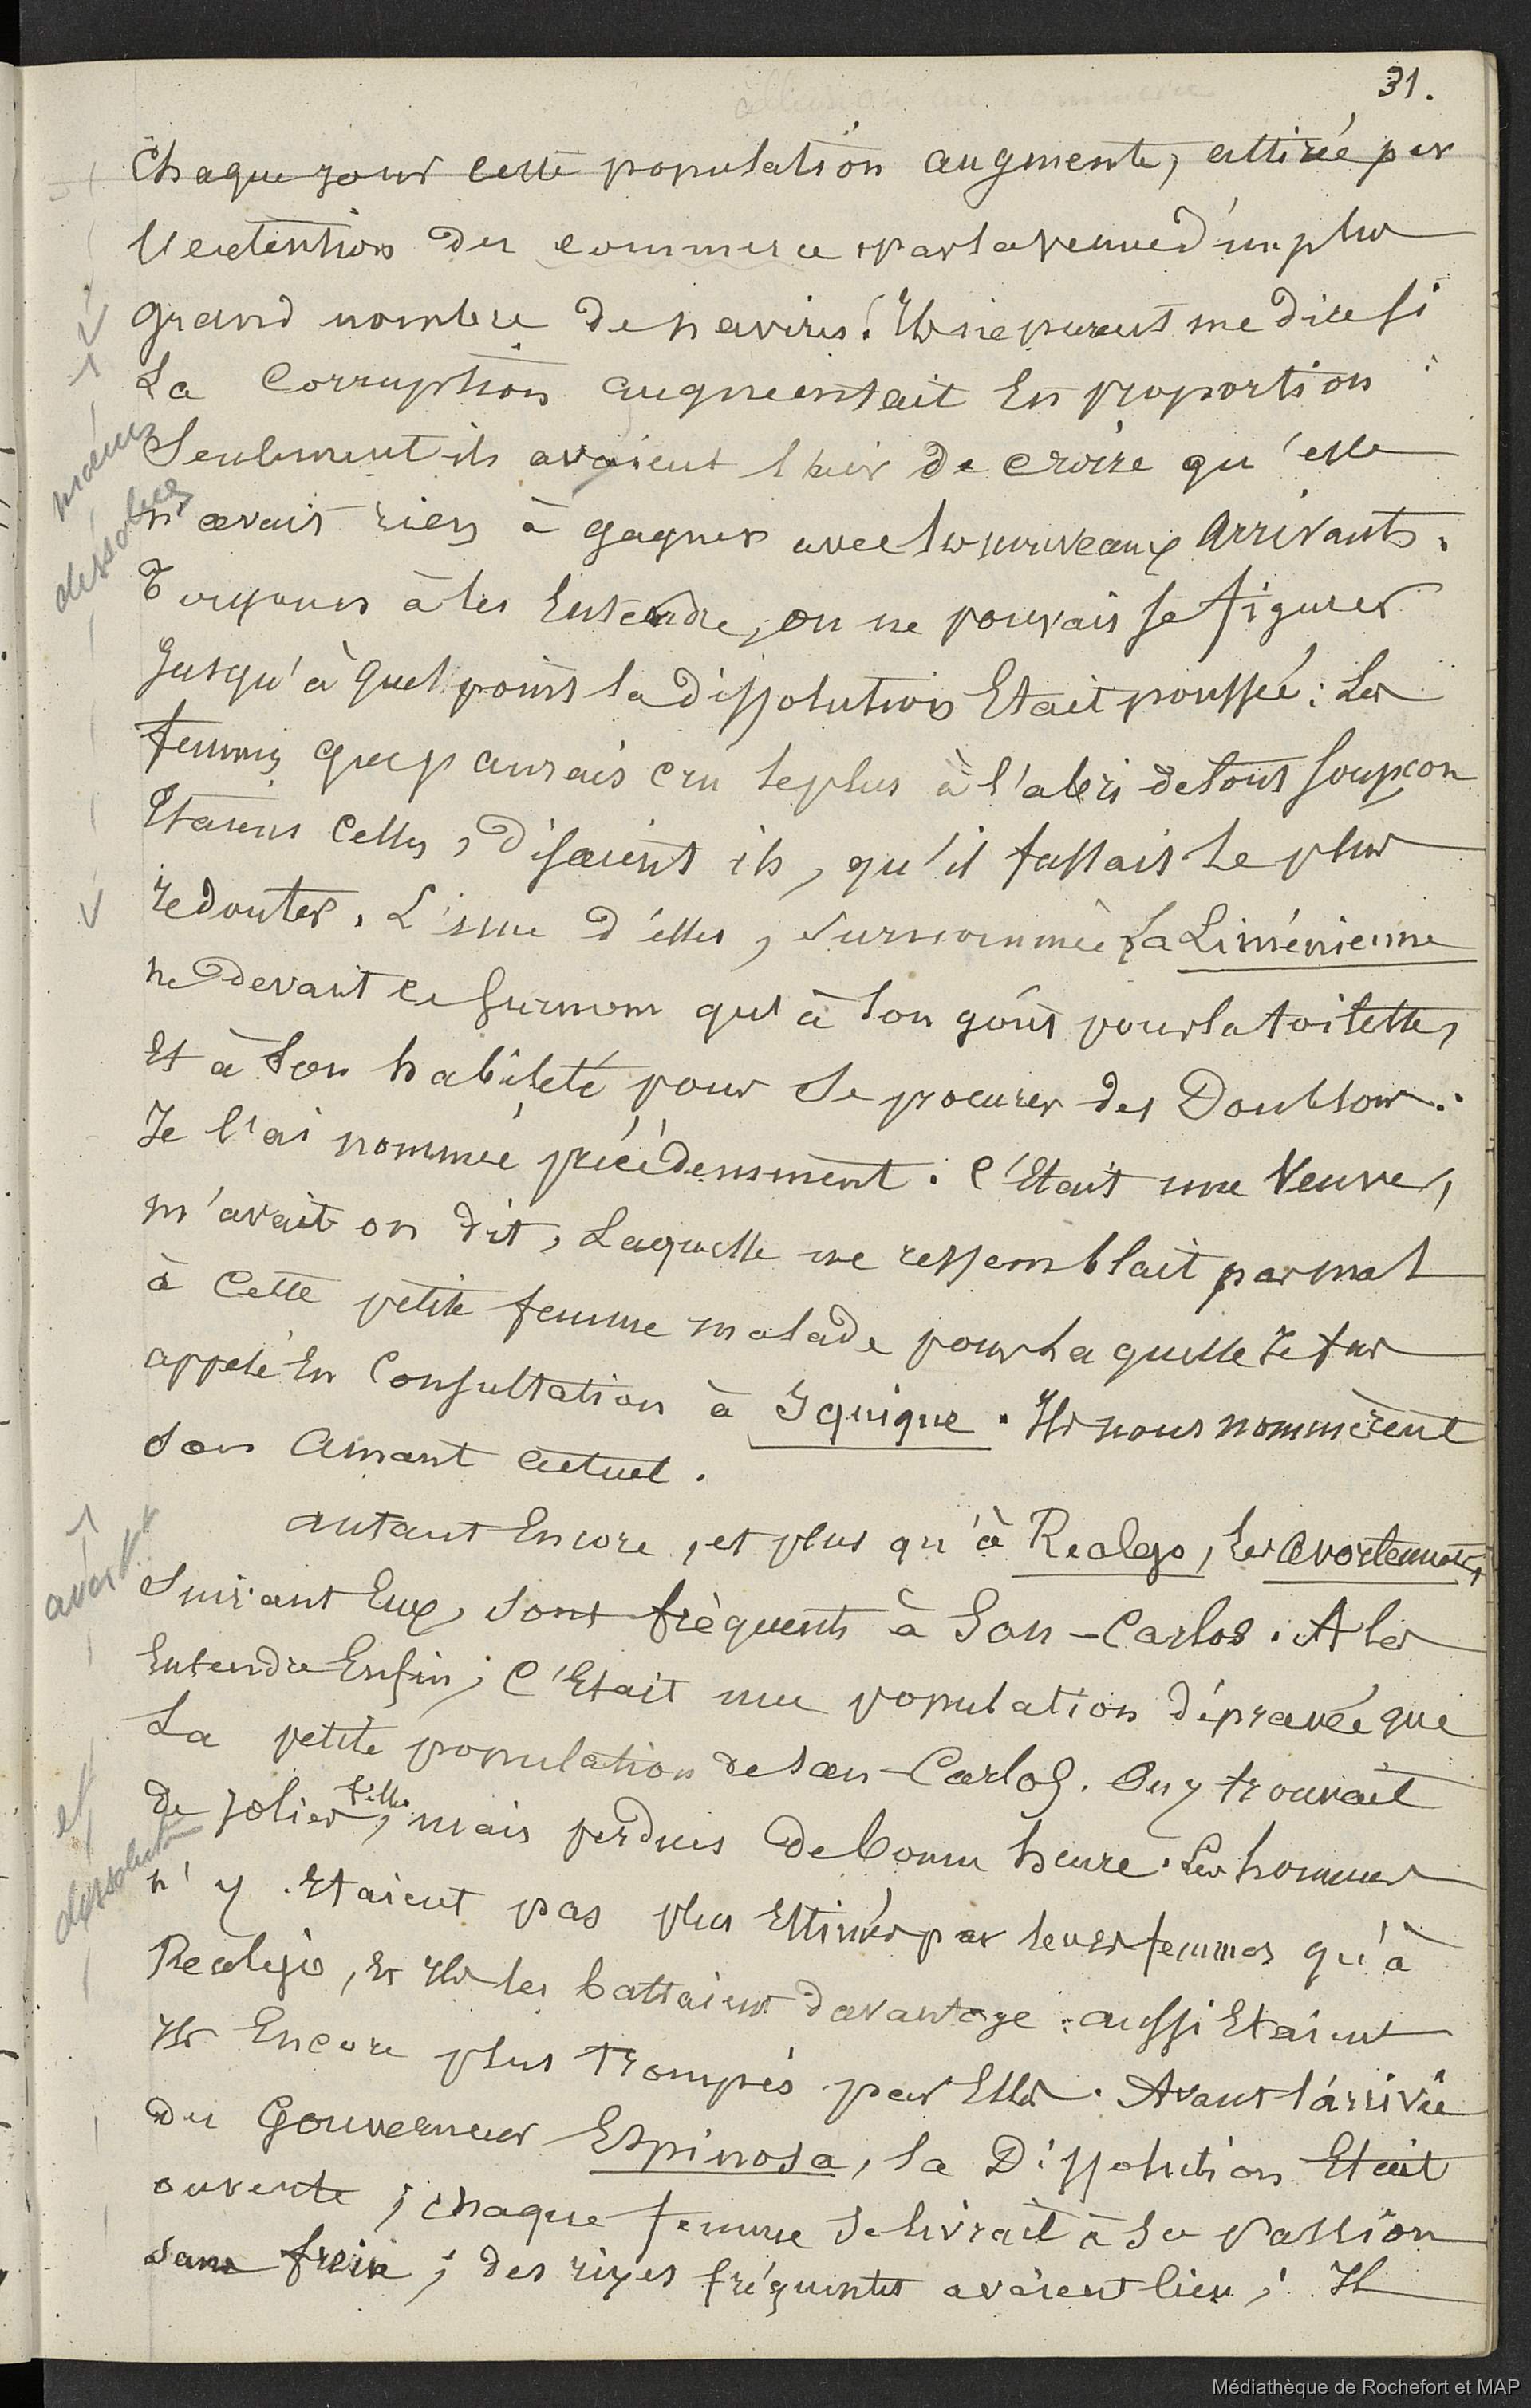 31.
Chaque jour cette population augmente, attirée par
l'extention du commerce et par la venue d'un plus
grand nombre de navires. Ils ne purent me dire si
La Corruption augmentait En proportion
Seulement ils avaient l'air de croire qu'elle
n'avait rien à gagner avec les nouveaux Arrivants.
Toujours à les Entendre, on ne pouvait se figurer
Jusqu'à quel point la dissolution Etait poussée : Les
femmes que j'aurais cru le plus à l'abri de tout soupçon
Etaient Celles, disaient ils, qu'il fallait le plus
redouter. L'une d'elles, surnommée La Liménienne
ne devait ce surnom qu'à son goût pour la toilette,
Et à son habileté pour se procurer des Doublons.
Je l'ai nommée précédemment. C'Etait une Veuve,
m'avait on dit, Laquelle me ressemblait pas mal
à Cette petite femme malade pour laquelle Je fus
appelé En Consultation à Iquique. Ils nous nommèrent
son Amant actuel.
autant Encore, et plus qu'à Realejo, les avortements,
suivant Eux, sont fréquents à San-Carlos. A les
Entendre Enfin, C'Etait une population dépravée que
La petite population de san-Carlos. On y trouvait
de jolies filles, mais perdues de bonne heure. Les hommes
n'y Etaient pas plus Estimés par leurs femmes qu'à
Realejo, Et Ils les battaient davantage : aussi Etaient
Ils Encore plus trompés par Elles. Avant l'arrivée
du Gouverneur Espinosa, la Dissolution Etait
ouverte ; chaque femme se livrait à sa passion
sans frein ; des rixes fréquentes avaient lieu ; Il
mœurs
dissolues
avort
et
dissolution
Médiathèque de Rochefort et MAP